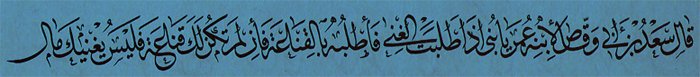 قال سعد بن أبي وقاص لابنه عمر يا بني اذا طلبت الغنى فاطلبه بالقناعة فإن لم تكن لك قناعة فليس يغنيك مال